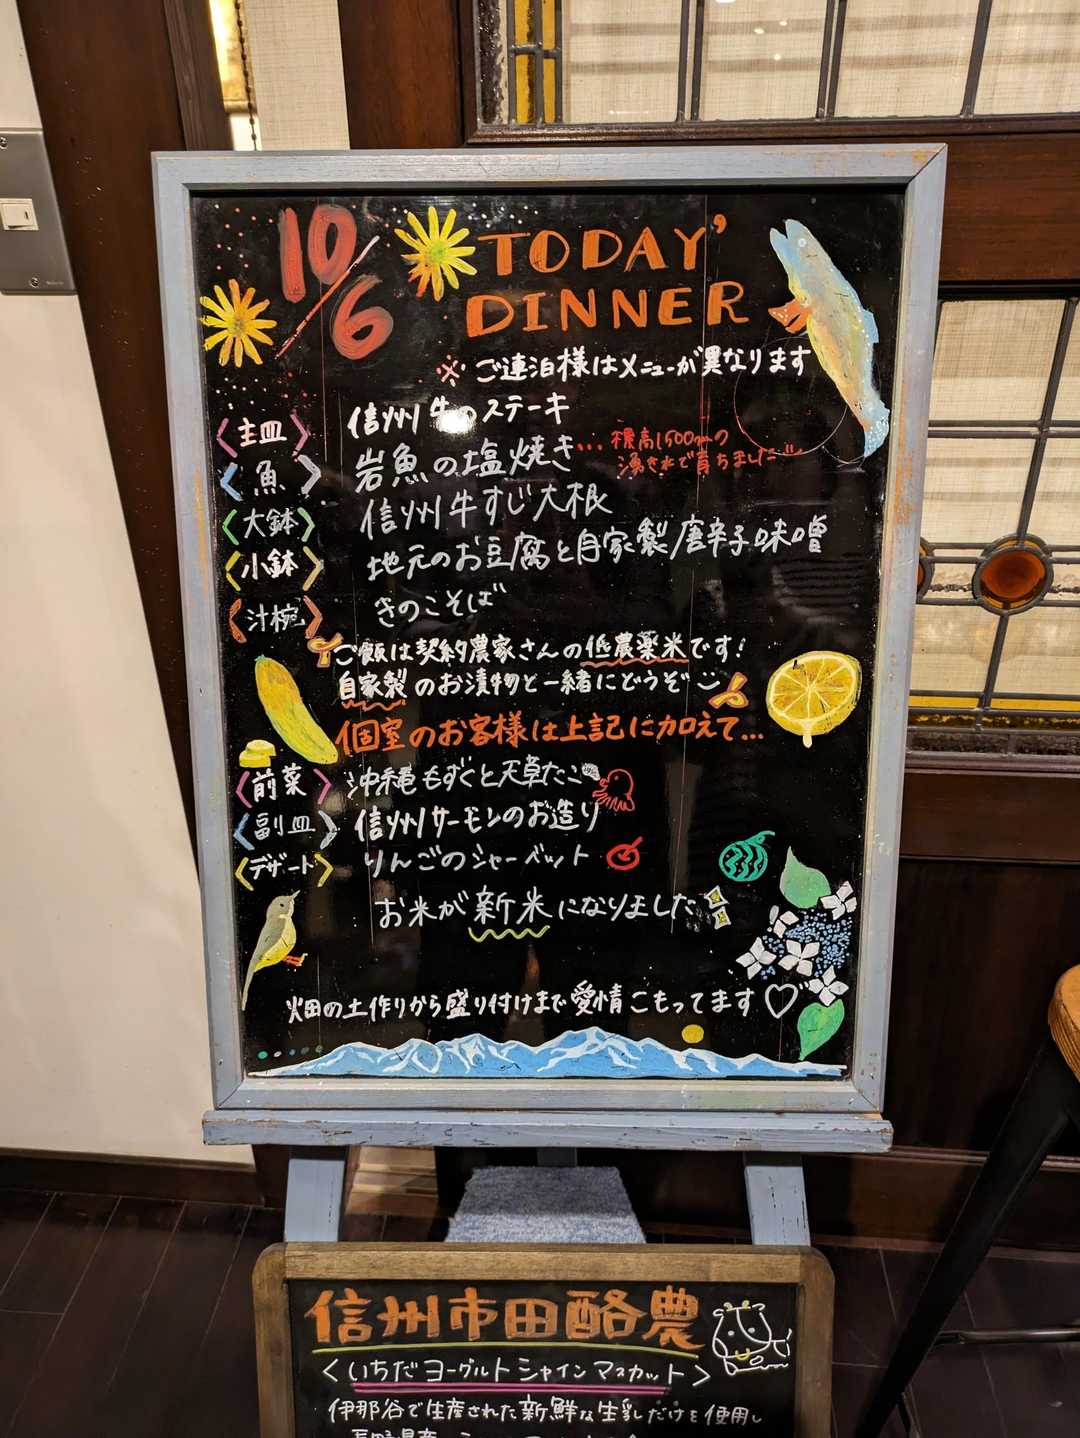 10/6
TODAY'
DINNER
※ご連泊様はメニューが異なります
〈主皿〉 信州牛のステーキ
〈魚〉 岩魚の塩焼き… 標高1500mの
湧き水で育ちました
〈大鉢〉 信州牛すじ大根
〈小鉢〉 地元のお豆腐と自家製唐辛子味噌
〈汁椀〉 きのこそば
ご飯は契約農家さんの低農薬米です!
自家製のお漬物と一緒にどうぞ
個室のお客様は上記に加えて…
〈前菜〉 沖縄もずくと天草たこ
〈副皿〉 信州サーモンのお造り
〈デザート〉 りんごのシャーベット
お米が新米になりました
畑の土作りから盛り付けまで愛情こもってます♡
信州市田酪農
<いちだヨーグルトシャインマスカット>
伊那谷で生産された新鮮な生乳だけを使用し